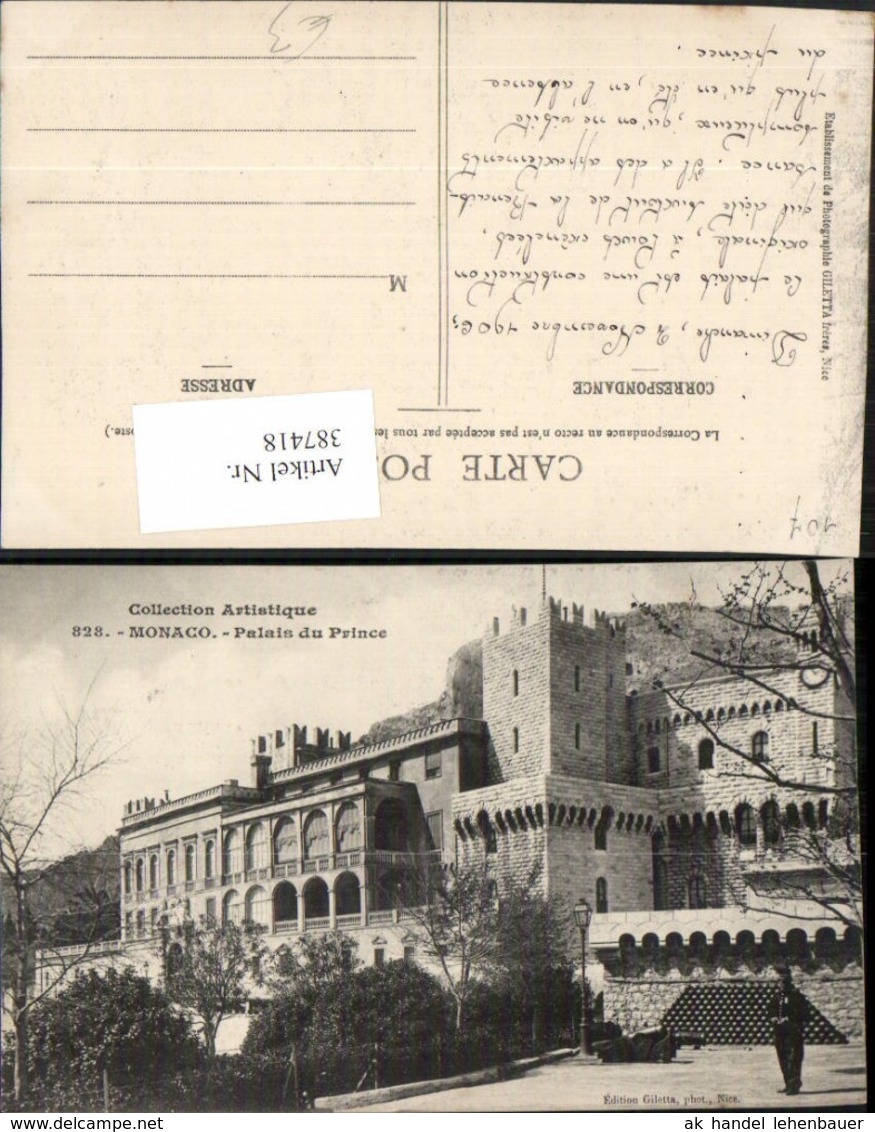 CARTE PO
La Correspondance au recto n'est pas acceptée par tous les
oste.)
Artikel Nr.
387418
CORRESPONDANCE
ADRESSE
Dimanche, 2 Novembre 1906;
Le palais est une construction
originale, à tours crénelées,
qui date surtout de la Renais-
sance. Il a des appartements
somptueux, qu'on ne visite
plus qu'en été, en l'absence
du prince.
M
Etablissement de Photographie GILETTA frères, Nice
107
€3
Collection Artistique
828. - MONACO. - Palais du Prince
Édition Giletta, phot., Nice.
ak handel lehenbauer